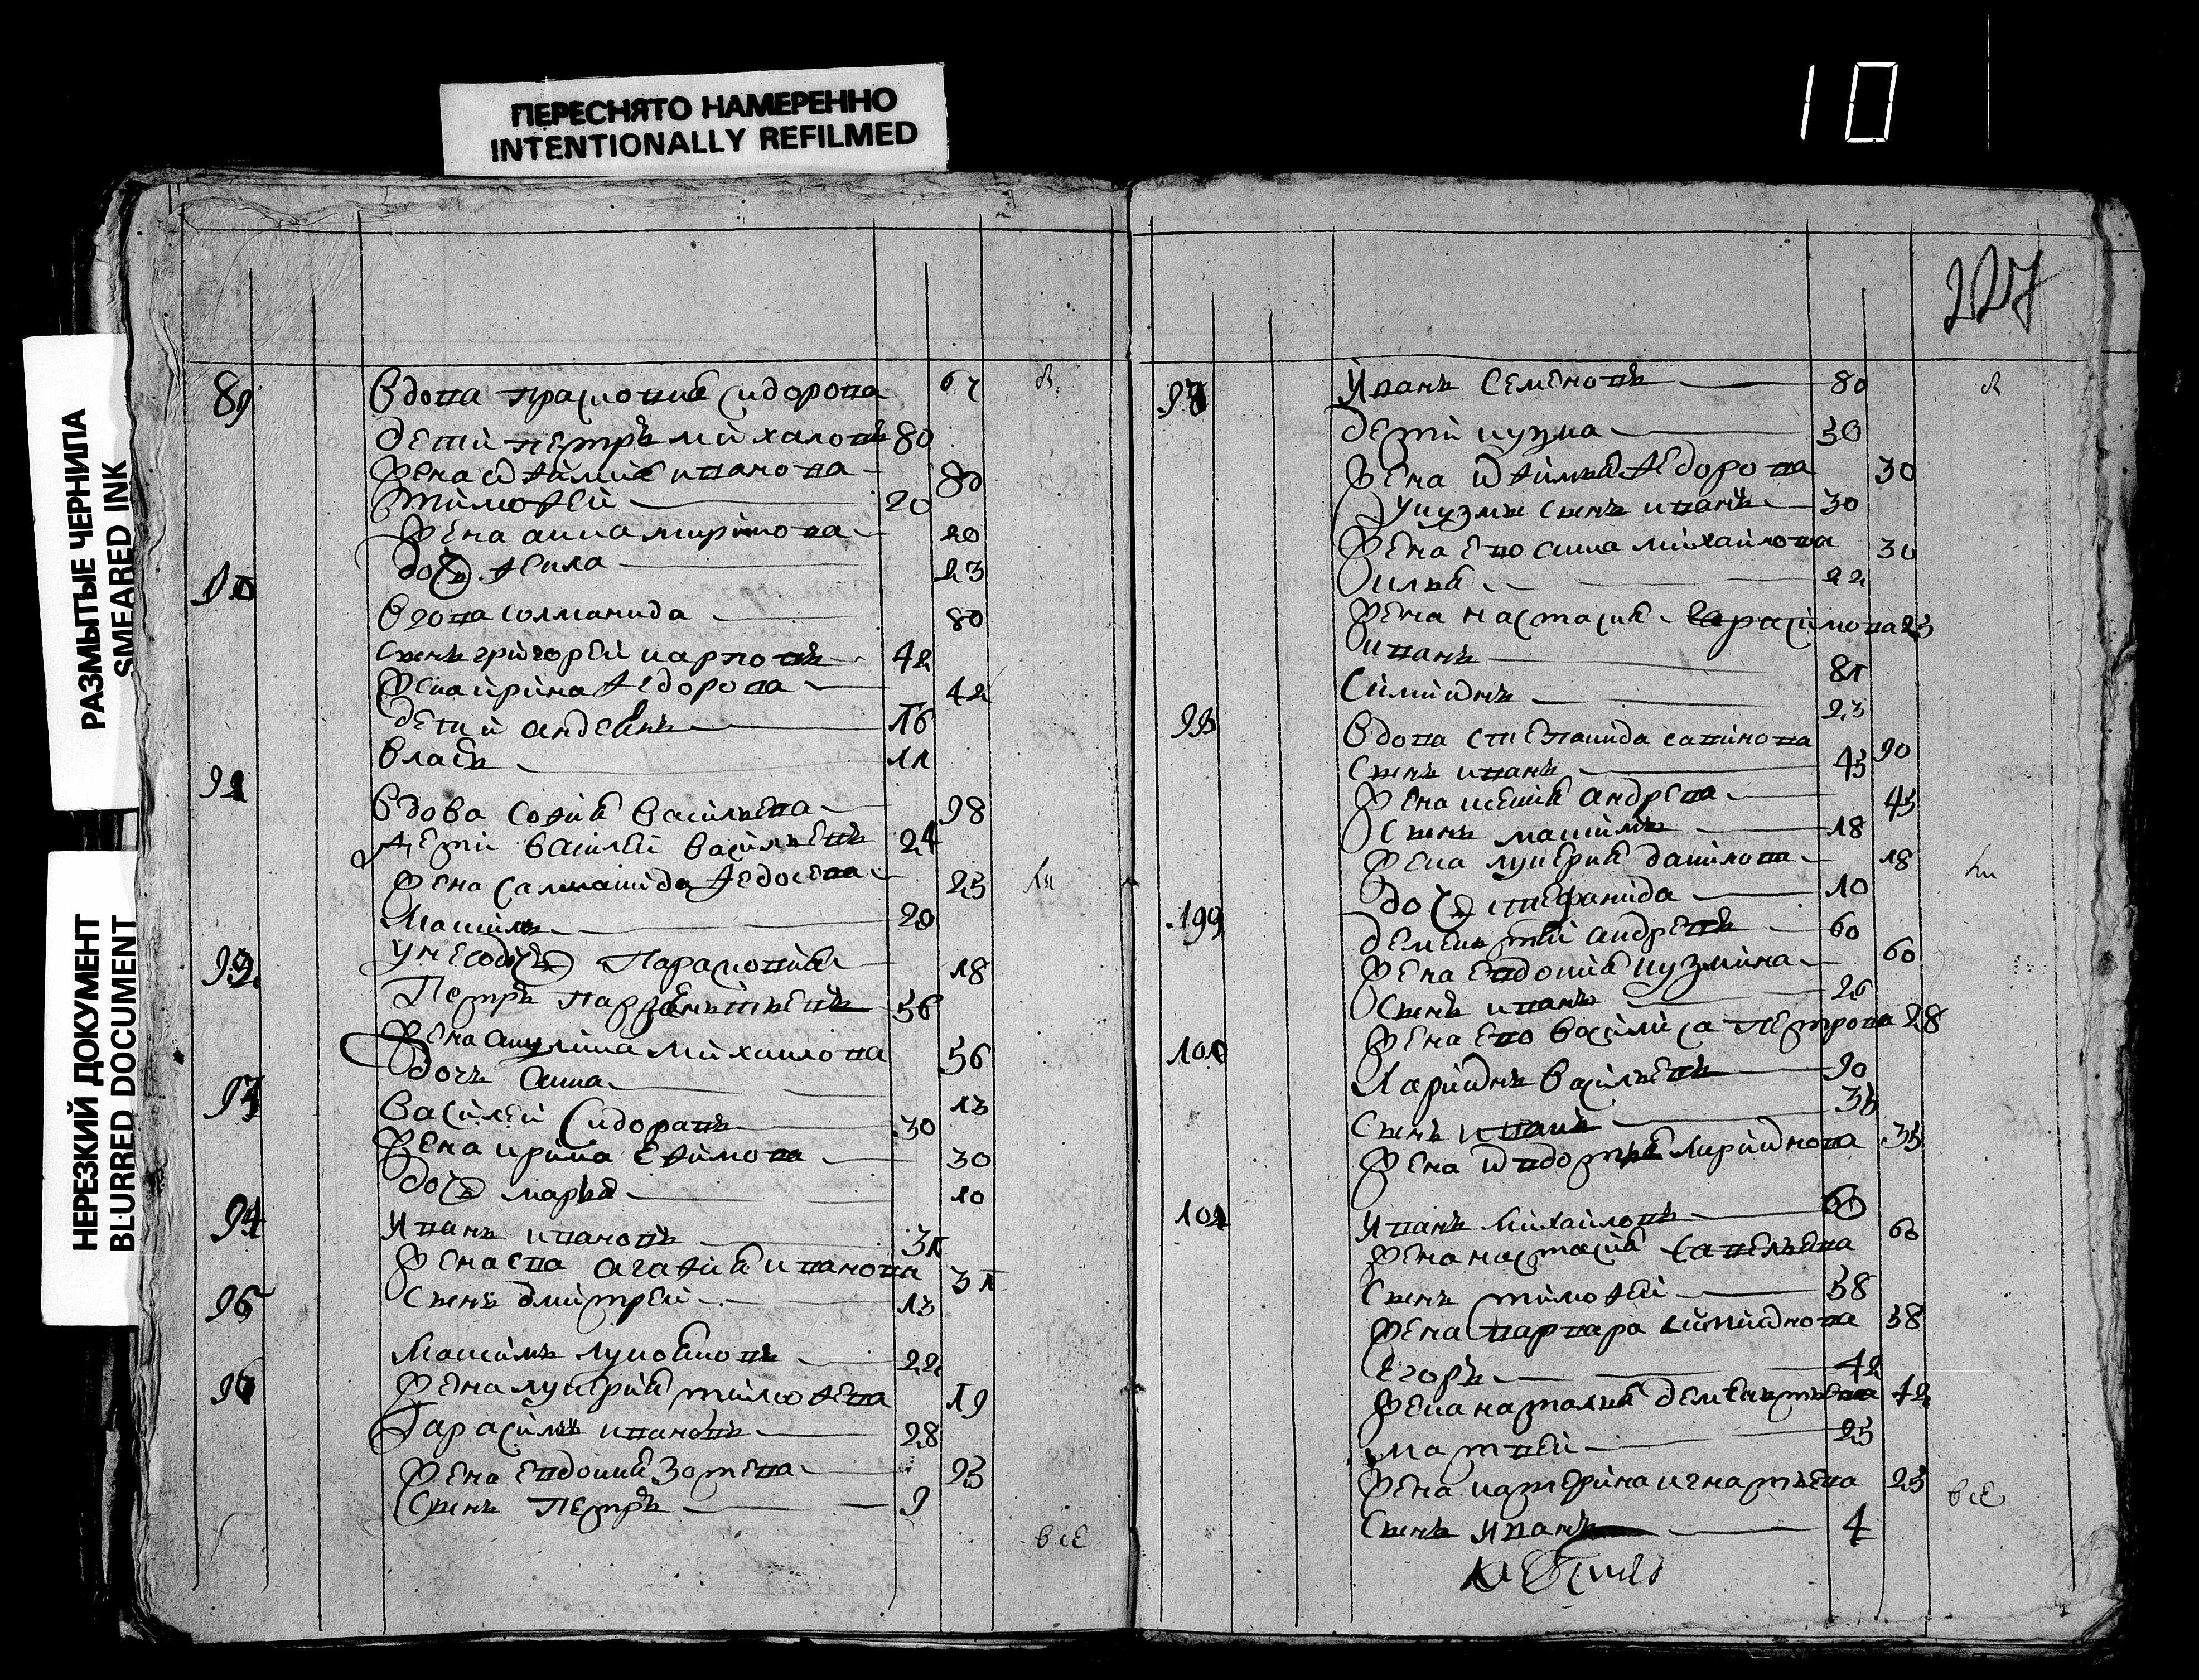 10
ПЕРЕСНЯТО НАМЕРЕННО
INTENTIONALLY REFILMED
РАЗМЫТЫЕ ЧЕРНИЛА
SMEARED INK
НЕРЕЗКИЙ ДОКУМЕНТ
BLURRED DOCUMENT
89 Вдова Прасковия Сидорова 67
дети Петръ Михаловъ 80
Жена Ефимия Иванова 80
Тимофей 20
Жена Анна 20
дочь Фекла 23
Вдова Соломанида 80
Сынъ Григорей Карповъ 42
Жена Ирина Федорова 42
дети 16
Власъ 11
91 Вдова София Васильева 98
Дети Василей Васильевъ 24
Жена Саламанида Федосева 25
Максимъ 20
Прасковия 18
92 Петръ Парфеньтьевъ 56
Жена Акулина Михаилова 56
дочь Анна 13
93 Василей Сидоравъ 30
Жена Ирина Ефимова 30
дочь Марья 10
94 Иванъ Ивановъ 31
Жена ева Агафия Иванова 31
Сынъ Дмитрей 13
95 Максимъ 22
Жена Лукерия Тимофева 19
96 Гарасимъ Ивановъ 28
Жена Евдокия Зотева 23
Сынъ Петръ 9
все
227
97 Иванъ Семеновъ 80
дети Кузма 50
Жена Ефимья Федорова 30
У Кузмы сынъ Иванъ 30
Жена ево Анна Михайлова 30
Илья 22
Жена Настасия Гарасимова 23
Иванъ
Симионъ 23
98 Вдова Степанида 90
Сынъ Иванъ 45
Жена Андрева 45
Сынъ Максимъ 18
Жена Лукерия Данилова 18
дочь Стефанида 10
199 Дементей Андревъ 60
Жена Евдокия Кузмина 60
Сынъ Иванъ 26
Жена ево Василиса Петрова 28
Ларионъ Васильевъ 90
Сынъ Иванъ
Жена Ларионова 35
Иванъ Михайловъ 60
Жена Настасия Савельева 60
Сынъ Тимофей 58
Жена Варвара Симионова 38
Егоръ 42
Жена Наталья Дементьева 42
Матвей 25
Жена Катерина Игнатьева 25
все
Сынъ Иванъ 4